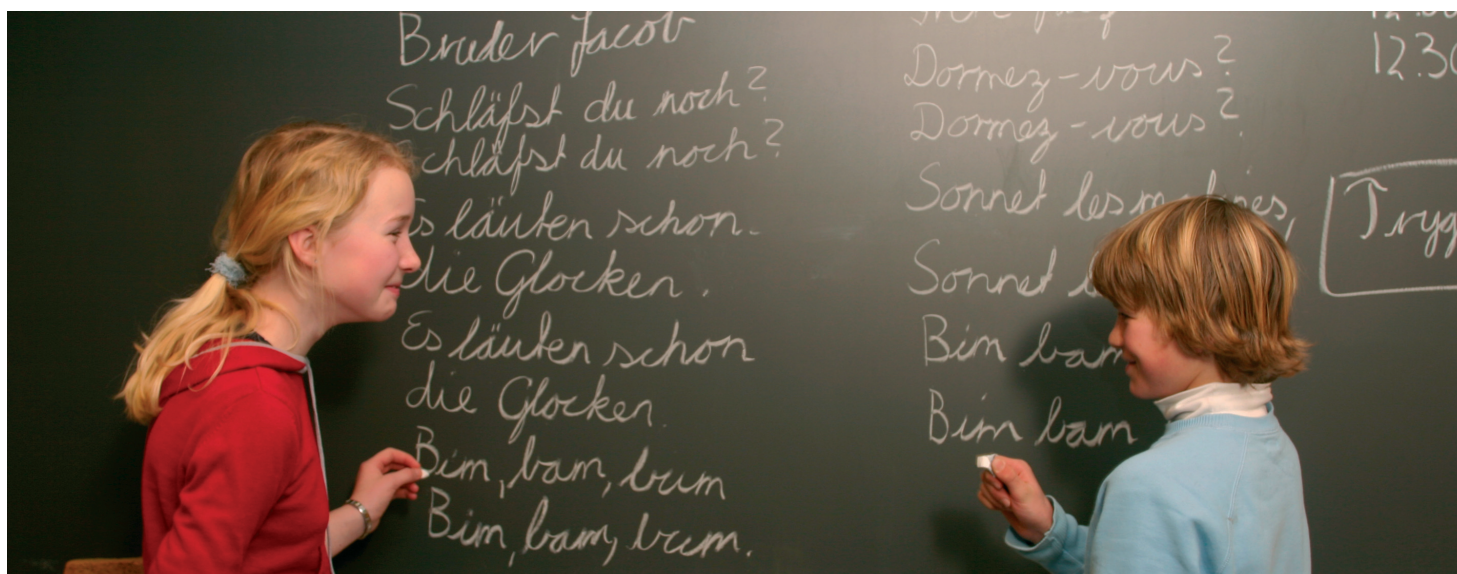 Bruder Jacob
Schläfst du noch?
Schläfst du noch?
Es läuten schon.
die Glocken.
Es läuten schon
die Glocken.
Bim, bam, bum
Bim, bam, bum.
Dormez-vous?
Dormez-vous?
Sonnet les matines,
Sonnet
Bim bam
Bim bam
12.30